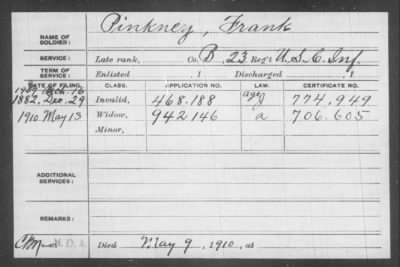 NAME OF SOLDIER: Pinkney, Frank
SERVICE: Late rank, Co. B, 23 Reg't U.S.C. Inf.
TERM OF SERVICE: Enlisted , 1 Discharged , 1
DATE OF FILING. CLASS. APPLICATION NO. LAW. CERTIFICATE NO.
1907 Mch. 16 age
1882. Dec. 29 Invalid, 468.188 774.949
1910 May 13 Widow, 942146 a 706.605
Minor,
ADDITIONAL SERVICES:
REMARKS:
N.D.A. Died May 9, 1910, at